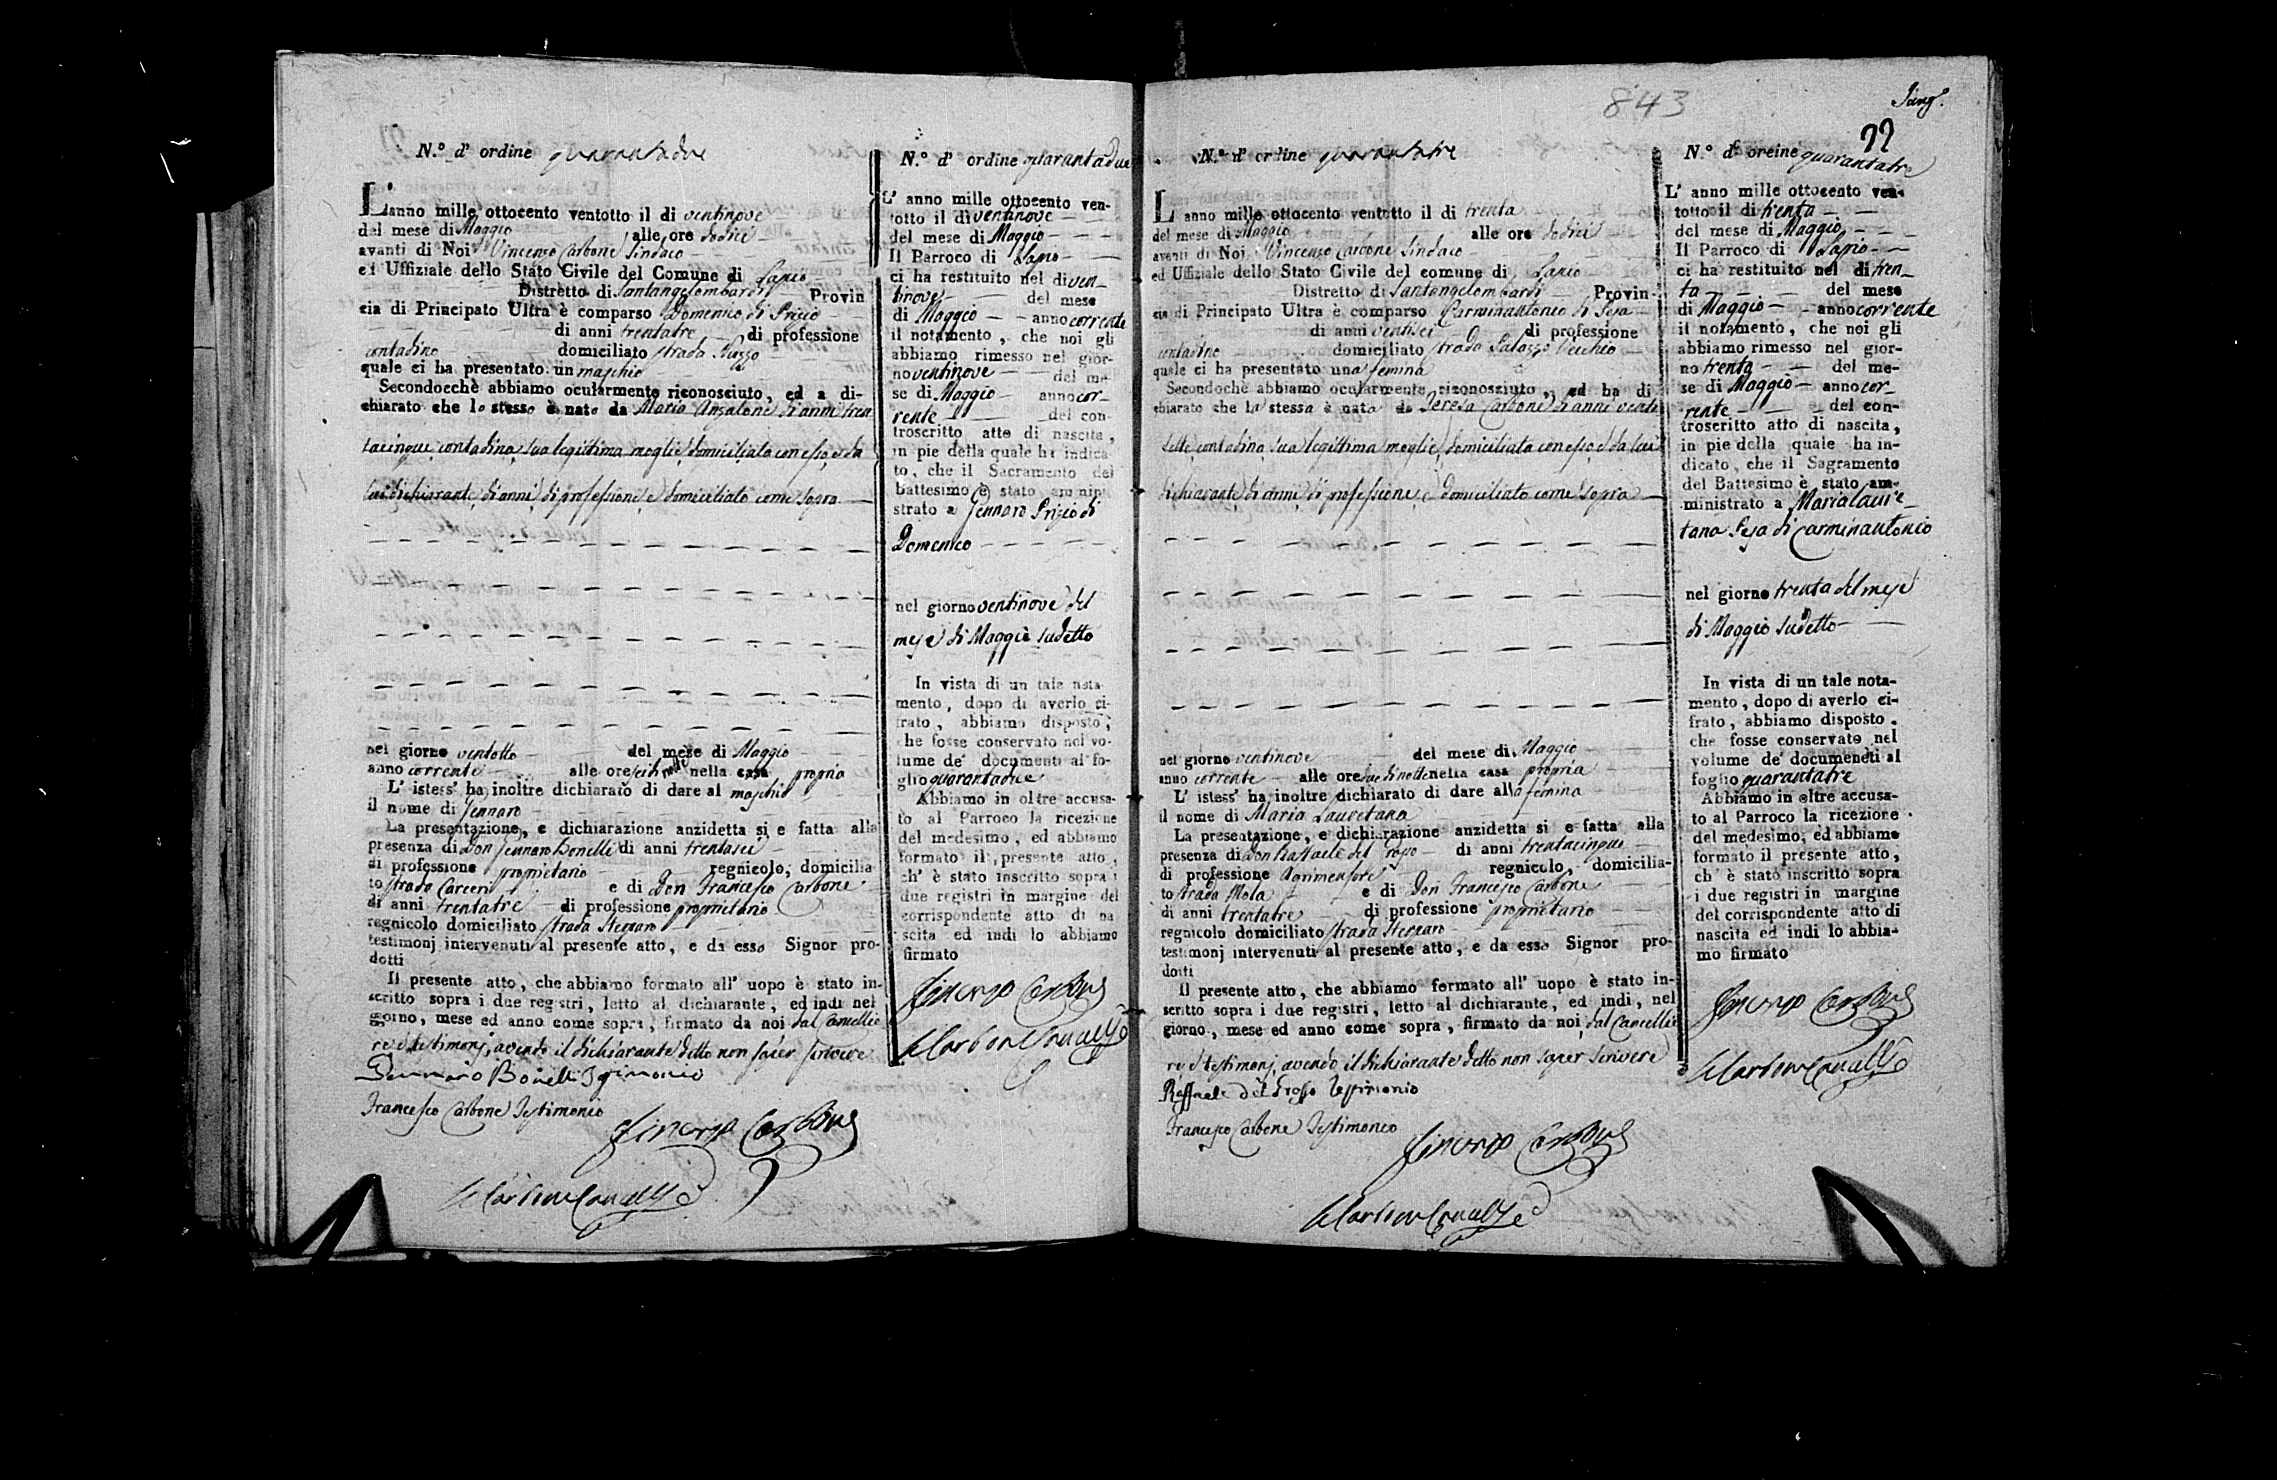 N.º d' ordine quarantadue
L'anno mille ottocento ventotto il di ventinove
del mese di Maggio alle ore dodici
avanti di Noi Vincenzo Carbone Sindaco
ed Uffiziale dello Stato Civile del Comune di Lapio
Distretto di Santangelombardi Provin
cia di Principato Ultra è comparso Domenico di Prizio
di anni trentatre di professione
contadino domiciliato strada
quale ci ha presentato un maschio
Secondocchè abbiamo ocularmente riconosciuto, ed a di-
chiarato che lo stesso è nato da Maria Anzalone di anni tren
tacinque contadina sua legittima moglie domiciliata con esso, e da
lui dichiarante di anni di professione e domiciliato come sopra
nel giorno ventotto del mese di Maggio
anno corrente alle ore sei di notte nella casa propria
L' istess' ha inoltre dichiarato di dare al maschio
il nome di Gennaro
La presentazione, e dichiarazione anzidetta si e fatta alla
presenza di Don Gennaro Bonelli di anni trentasei
di professione proprietario regnicolo, domicilia
to strada Carceri e di Don Francesco Carbone
di anni trentatre di professione proprietario
regnicolo domiciliato strada
testimonj intervenuti al presente atto, e da esso Signor pro-
dotti
Il presente atto, che abbiamo formato all' uopo è stato in-
scritto sopra i due registri, letto al dichiarante, ed indi nel
giorno, mese ed anno come sopra, firmato da noi dal Cancellie
re e testimonj, avendo il dichiarante detto non saper scrivere
Gennaro Bonelli
Francesco Carbone Testimonio
Vincenzo Carbone
N.º d' ordine quarantadue
L' anno mille ottocento ven-
totto il di ventinove
del mese di Maggio
Il Parroco di Lapio
ci ha restituito nel di ven-
tinove del mese
di Maggio anno corrente
il notamento, che noi gli
abbiamo rimesso nel gior-
no ventinove del me-
se di Maggio anno cor-
rente del con-
troscritto atto di nascita,
in pie della quale ha indica-
to, che il Sacramento del
battesimo è stato ammini
strato a Gennaro Prizio di
Domenico
nel giorno ventinove del
mese di Maggio sudetto
In vista di un tale nota-
mento, dopo di averlo ci-
frato, abbiamo disposto,
che fosse conservato nel vo-
lume de' documenti al fo-
glio quarantadue
Abbiamo in oltre accusa-
to al Parroco la ricezione
del medesimo, ed abbiamo
formato il presente atto,
ch' è stato inscritto sopra i
due registri in margine del
corrispondente atto di na
scita ed indi lo abbiamo
firmato
Vincenzo Carbone
843
22
N.º d' ordine quarantatre
L anno mille ottocento ventotto il di trenta
del mese di Maggio alle ore dodici
avanti di Noi Vincenzo Carbone Sindaco
ed Uffiziale dello Stato Civile del comune di Lapio
Distretto di Santangelombardi Provin-
cia di Principato Ultra è comparso Carminantonio di Pesa
di anni ventisei di professione
contadino domiciliato strada Palazzo Vecchio
quale ci ha presentato una femina
Secondochè abbiamo ocularmente riconosciuto, ed ha di
chiarato che la stessa è nata da Teresa Carbone di anni venti
sette contadina sua legittima moglie domiciliata con esso, e da lui
dichiarante di anni di professione, e domiciliato come sopra
nel giorno ventinove del mese di Maggio
anno corrente alle ore due di notte nella casa propria
L' istess' ha inoltre dichiarato di dare alla femina
il nome di Maria Lauretana
La presentazione, e dichiarazione anzidetta si e fatta alla
presenza di Don Raffaele del Grosso di anni trentacinque
di professione regnicolo, domicilia-
to strada Mola e di Don Francesco Carbone
di anni trentatre di professione proprietario
regnicolo domiciliato strada
testimonj intervenuti al presente atto, e da esso Signor pro-
dotti
Il presente atto, che abbiamo formato all' uopo è stato in-
scritto sopra i due registri, letto al dichiarante, ed indi, nel
giorno, mese ed anno come sopra, firmato da noi dal Cancellie
re, e testimonj, avendo il dichiarante detto non saper scrivere
Raffaele del Grosso Testimonio
Francesco Carbone Testimonio
Vincenzo Carbone
N.º d' oreine quarantatre
L' anno mille ottocento ven-
totto il di trenta
del mese di Maggio
Il Parroco di Lapio
ci ha restituito nel di tren-
ta del mese
di Maggio anno corrente
il notamento, che noi gli
abbiamo rimesso nel gior-
no trenta del me-
se di Maggio anno cor-
rente del con-
troscritto atto di nascita,
in pie della quale ha in-
dicato, che il Sagramento
del Battesimo è stato am-
ministrato a Maria Laure-
tana Pesa di Carminantonio
nel giorno trenta del mese
di Maggio sudetto
In vista di un tale nota-
mento, dopo di averlo ci-
frato, abbiamo disposto.
che fosse conservato nel
volume de' documeneti al
foglio quarantatre
Abbiamo in oltre accusa-
to al Parroco la ricezione
del medesimo, ed abbiamo
formato il presente atto,
ch' è stato inscritto sopra
i due registri in margine
del corrispondente atto di
nascita ed indi lo abbia-
mo firmato
Vincenzo Carbone